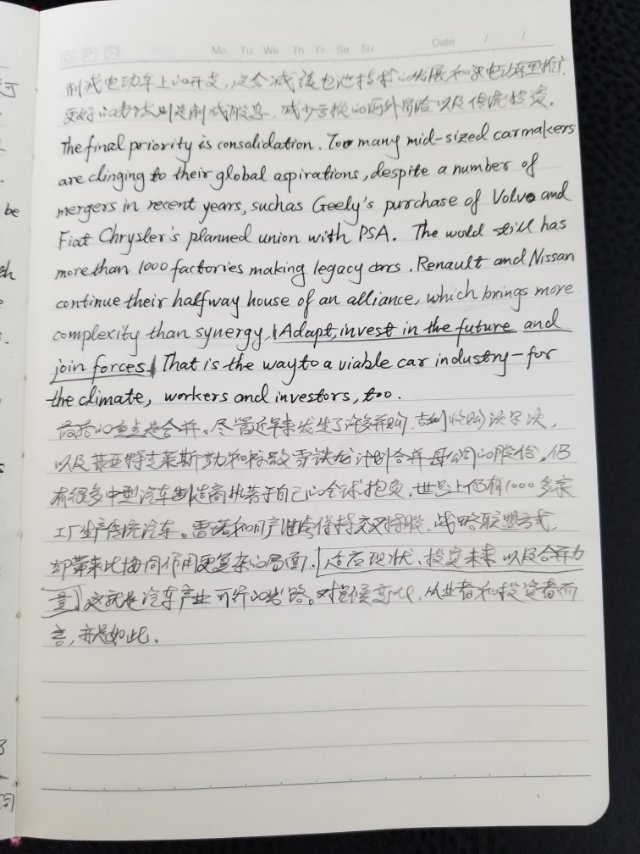 Mo Tu We Th Fr Sa Su Date / /
削减电动车上的开支,这会减缓电池技术的发展和家电动车型推广
更好的办法则是削减股息,减少亏损的海外冒险以及传统投资。
The final priority is consolidation. Too many mid-sized carmakers
are clinging to their global aspirations, despite a number of
mergers in recent years, such as Geely's purchase of Volvo and
Fiat Chrysler's planned union with PSA. The world still has
more than 1000 factories making legacy cars. Renault and Nissan
continue their halfway house of an alliance, which brings more
complexity than synergy. Adapt, invest in the future and
join forces. That is the way to a viable car industry – for
the climate, workers and investors, too.
最后的重点是合并。尽管近年来发生了许多并购,吉利收购沃尔沃,
以及菲亚特克莱斯勒和标致雪铁龙计划合并母公司的股份。仍
有很多中型汽车制造商执着于自己的全球抱负,世界上仍有1000多家
工厂生产传统汽车。雷诺和日产继续保持交叉持股,战略联盟方式,
却带来比协同作用更复杂的局面。适应现状、投资未来以及合并力
量,这就是汽车产业可行的出路。对气候变化,从业者和投资者而
言,亦是如此。
be